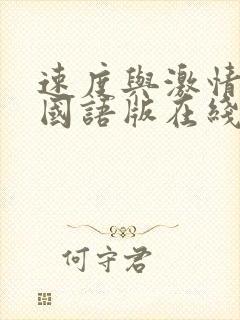 速度與激情
國語版在綫
何守君